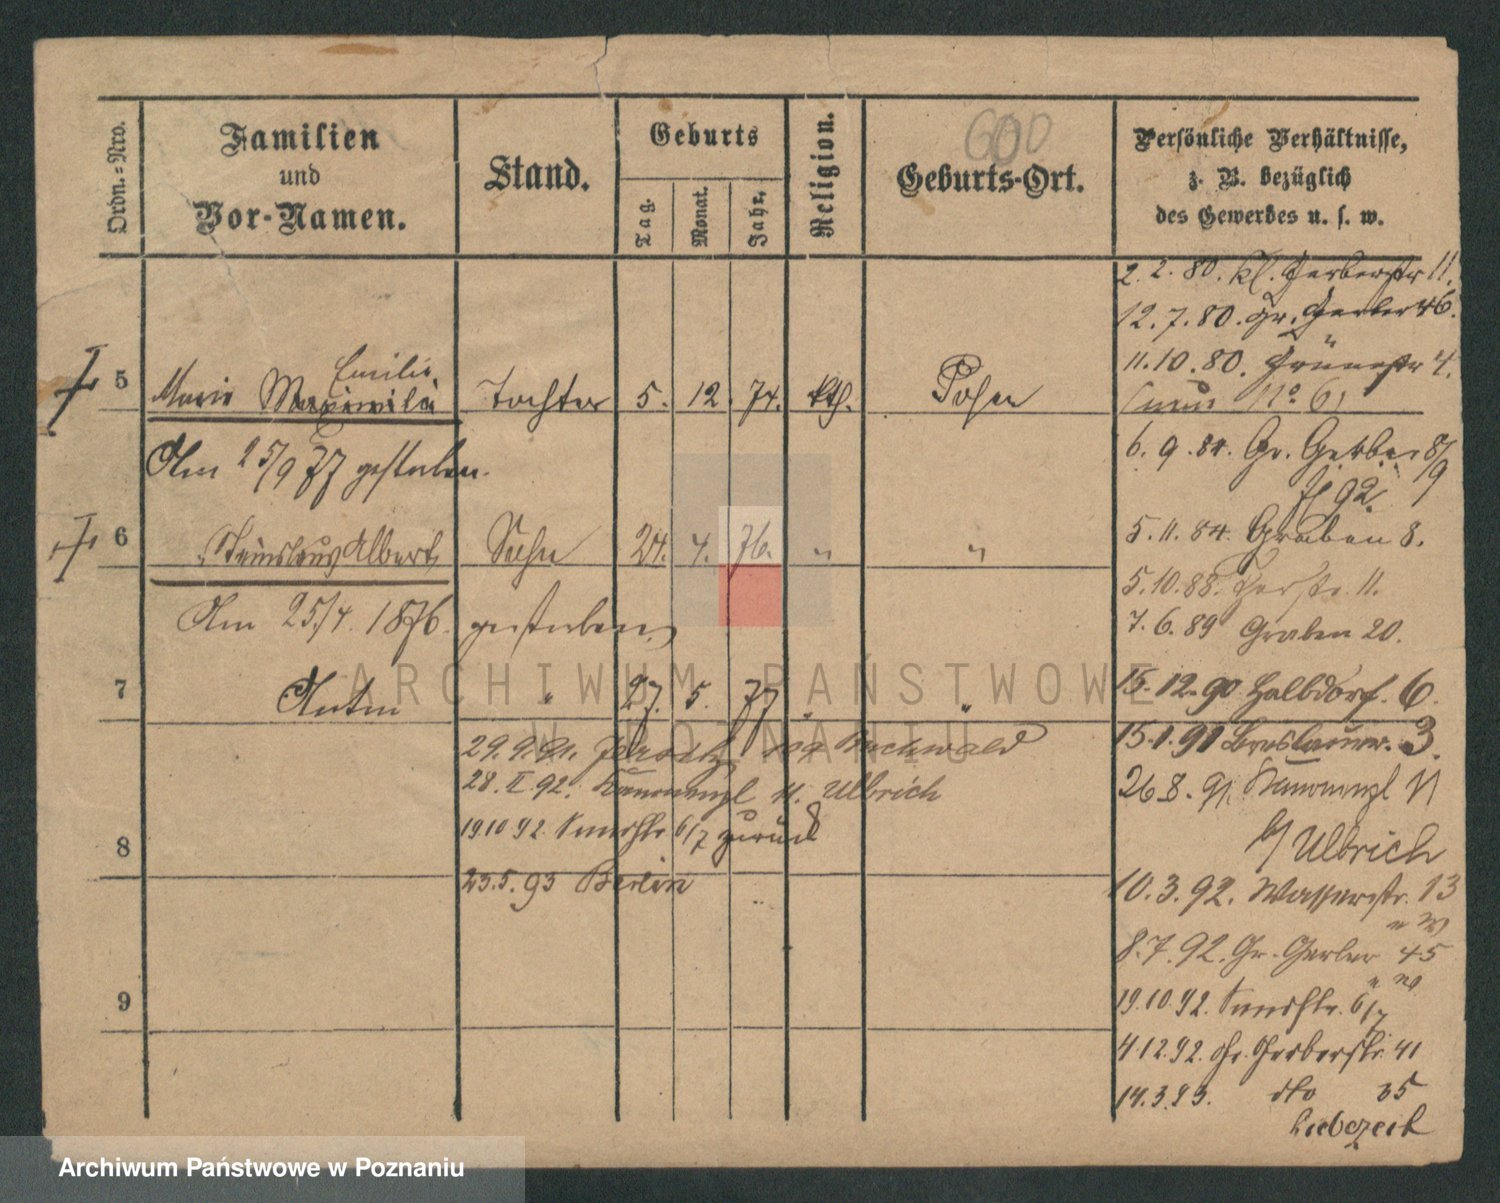 600
Ordn.=Nro.
Familien
und
Vor-Namen.
Stand.
Geburts
Tag.
Monat.
Jahr.
Religion.
Geburts-Ort.
Persönliche Verhältnisse,
z. B. bezüglich
des Gewerbes u. s. w.
2. 2. 80. Kl. Gerberstr 11.
12. 7. 80. Gr. Gerber 46.
"
11. 10. 80. Grünestr 4.
Emilie
5 Marie Tochter 5. 12. 74. kth. Posen
No 6
Am 25/9 77 gestorben.
6. 9. 84. Gr. Gerber 8/9
92.
6 Stanislaus Albert Sohn 24. 4. 76. " "
5. 11. 84. Graben 8.
5. 10. 88. 11.
Am 25/4. 1876. gestorben
7. 6. 89 Graben 20.
7 Anton " 27. 5. 77 " "
15. 12. 90. Halbdorf. 6.
29. 9. 91. Buchwald
15. 1. 91 Breslauer. 3.
28. II. 92. 11. Ulbrich
26. 8. 91. 11
19 10 92. 6/7 zurück
b/ Ulbrich
8
23. 5. 93 Berlin
10. 3. 92. Wasserstr. 13
8. 7. 92. Gr. Gerber 45
9
19. 10. 92. 6/7
4. 12. 92. Gr. Gerberstr. 41
14. 3. 93. dto 35
Liebzeit
ARCHIWUM PAŃSTWOWE
W POZNANIU
Archiwum Państwowe w Poznaniu